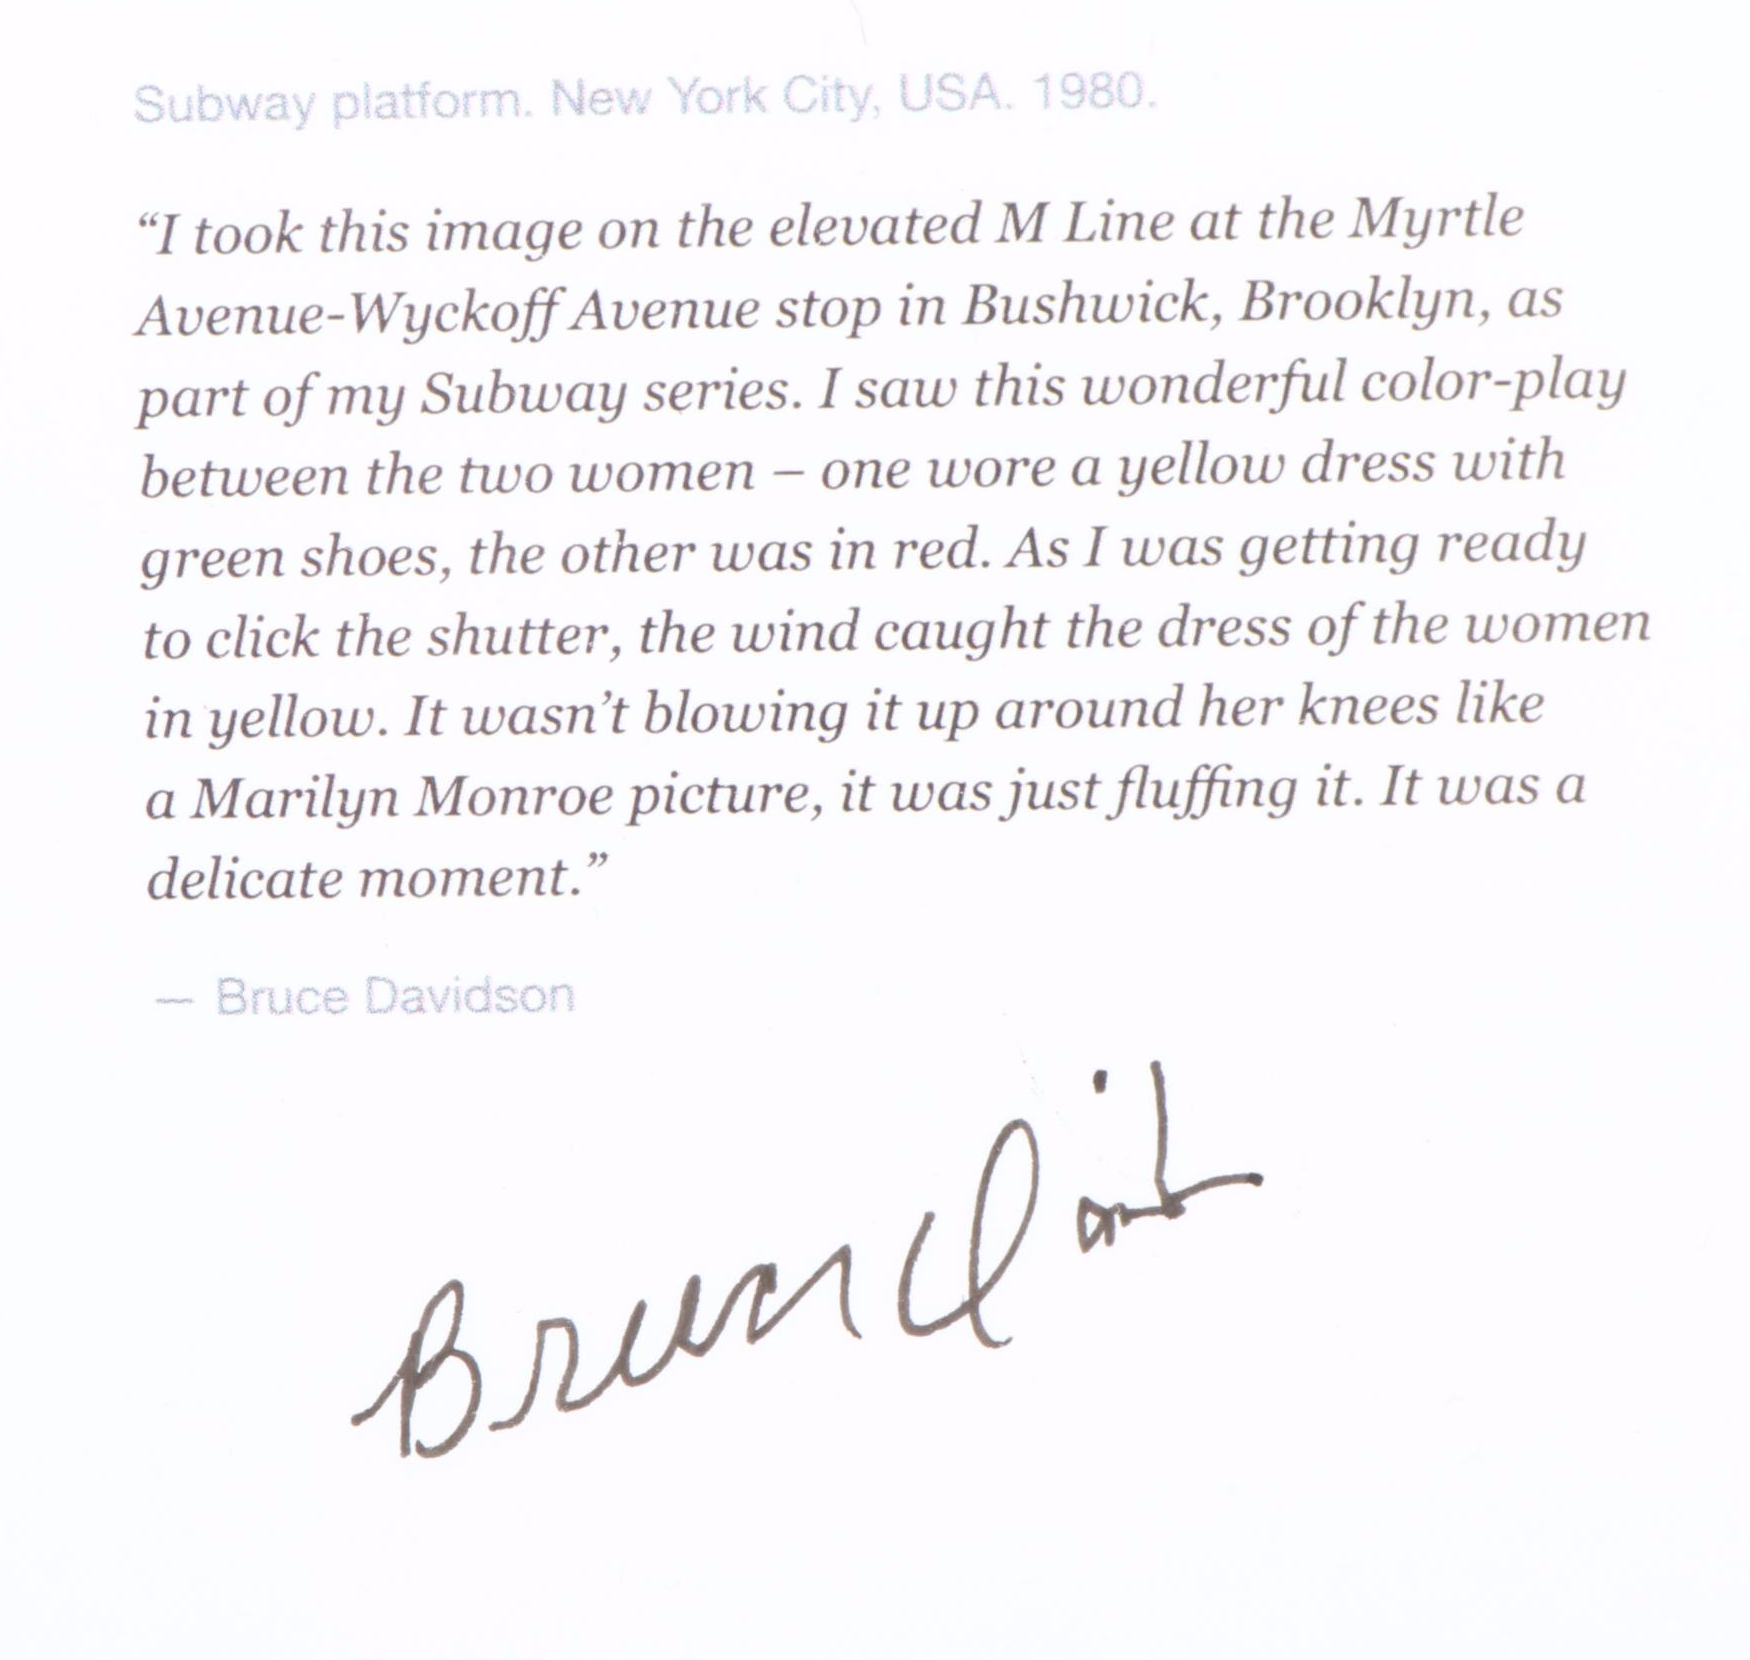 Subway platform. New York City, USA. 1980.
“I took this image on the elevated M Line at the Myrtle
Avenue-Wyckoff Avenue stop in Bushwick, Brooklyn, as
part of my Subway series. I saw this wonderful color-play
between the two women – one wore a yellow dress with
green shoes, the other was in red. As I was getting ready
to click the shutter, the wind caught the dress of the women
in yellow. It wasn’t blowing it up around her knees like
a Marilyn Monroe picture, it was just fluffing it. It was a
delicate moment.”
— Bruce Davidson
Bruce